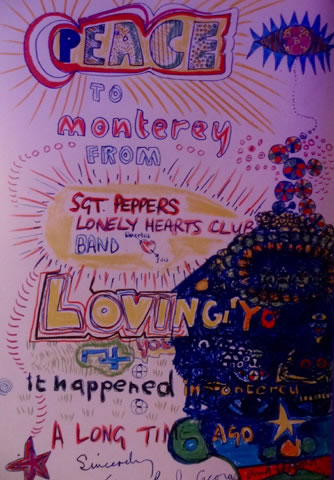 PEACE
TO
monterey
FROM
SGT. PEPPERS
LONELY HEARTS CLUB
BAND
you
LOVING YO
it happened in monterey
A LONG TIME AGO
Sincerely
George